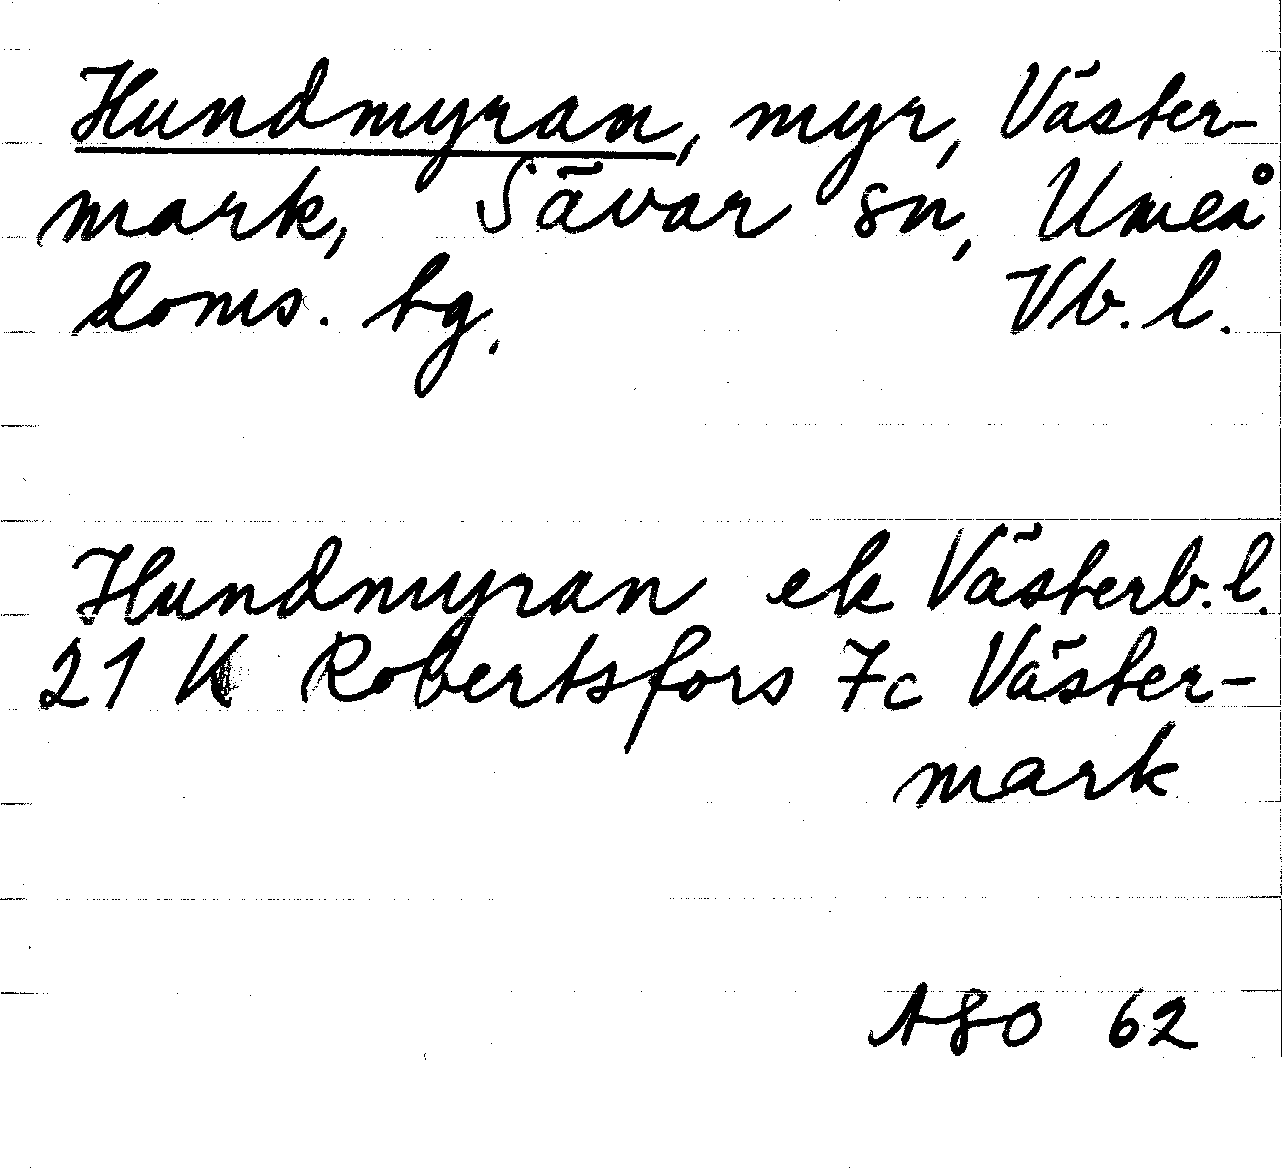 Hundmyran, myr, Väster-
mark, Sävar sn, Umeå
doms. tg. Vb. l.
Hundmyran ek Västerb. l.
21 K Robertsfors 7c Väster-
mark
ASO 62